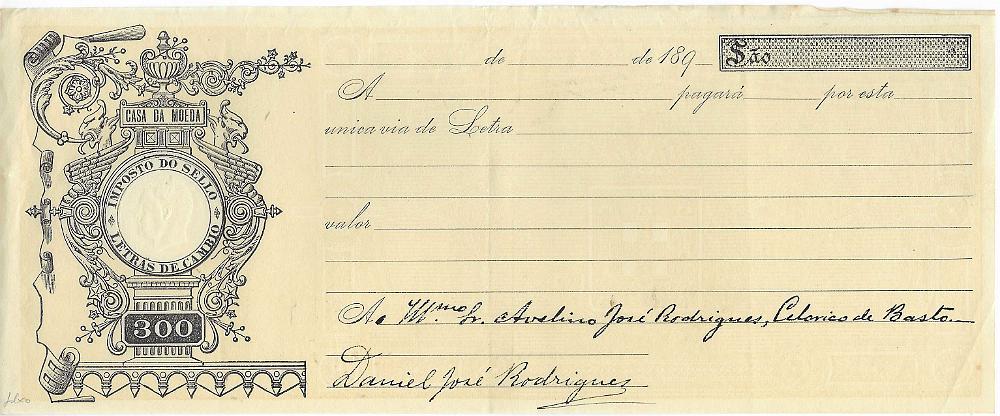 CASA DA MOEDA
IMPOSTO DO SELLO
LETRAS DE CAMBIO
300
de de 189 São
A pagará por esta
unica via de Letra
valor
Ao Illmo Sr. Avelino José Rodrigues, Celorico de Basto
Daniel José Rodrigues